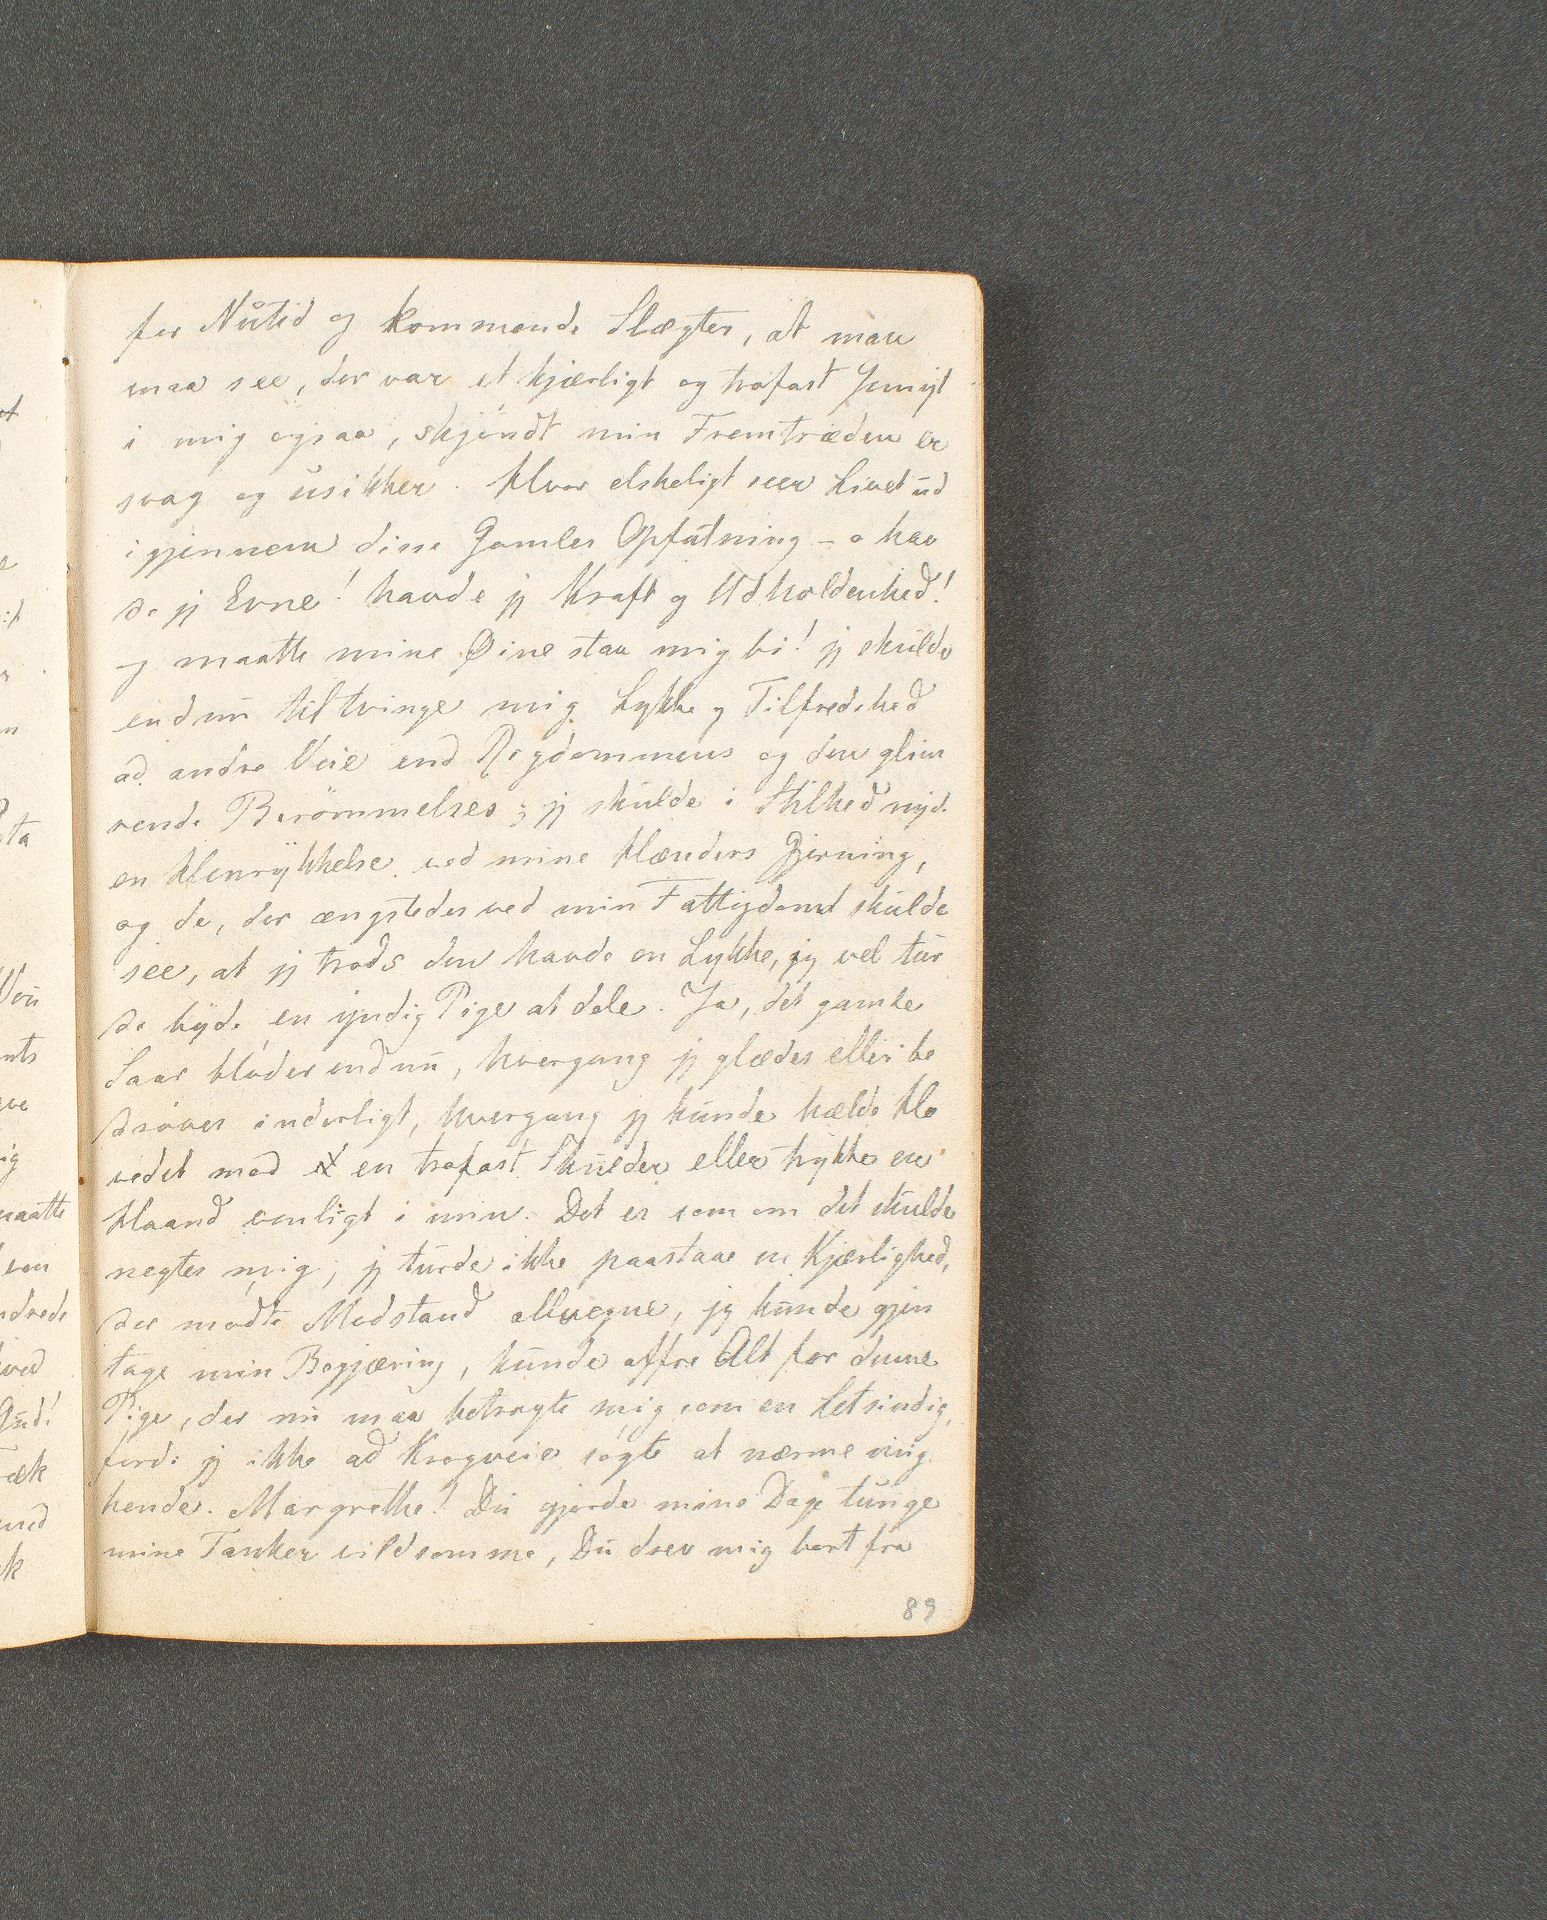 for Nutid og kommende Slægter, at man
maa see, der var et kjærligt og trofast Gemyt
i mig ogsaa, skjöndt min Fremtræden er
svag og usikker. Hvor elskeligt seer Livet ud
igjennem disse Gamles Opfatning – o hav
de jeg Evne! havde jeg Kraft og Udholdenhed!
og maatte mine Øine staa mig bi! jeg skulde
endnu tiltvinge mig Lykke og Tilfredshed
ad andre Veie end Rigdommens og den glim
rende Berömmelses; jeg skulde i Stilhed nyde
en Henrykkelse ved mine Hænders Gjerning,
og de, der ængstedes ved min Fattigdomd skulde
see, at jeg trods den havde en Lykke, jeg vel tur
de byde en yndig Pige at dele. Ja, det gamle
Saar bløder endnu, hvergang jeg glædes eller be
drøves inderligt, hvergang jeg kunde hælde Ho
vedet mod en trofast Skulder eller trykke en
Haand venligt i min. Det er som om det skulde
negtes mig; jeg turde ikke paastaae en Kjærlighed,
der mødte Modstand allvegne, jeg kunde gjen
tage min Begjæring, kunde offre Alt for denne
Pige, der nu maa betragte mig som en Letsindig,
fordi jeg ikke ad Krogveie søgte at nærme mig
hende. Margrethe! Du gjorde mine Dage tunge
mine Tanker vildsomme, Du drev mig bort fra
89